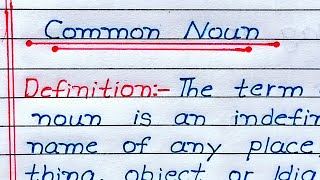 Common Noun
Definition:- The term
noun is an
name of any place,
thing, object or